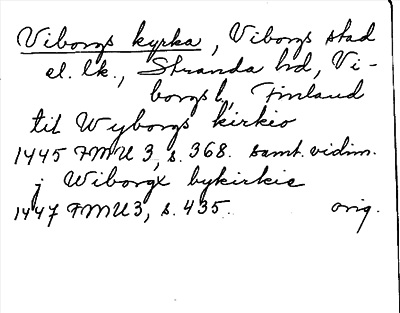 Viborgs kyrka, Viborgs stad
el. lk., Stranda hd, Vi-
borgs l, Finland
til Wyborgs kirkio
1445 FMU 3, s. 368. samt. vidim.
j Wiborgx bykirkie
1447 FMU 3, s. 435. orig.